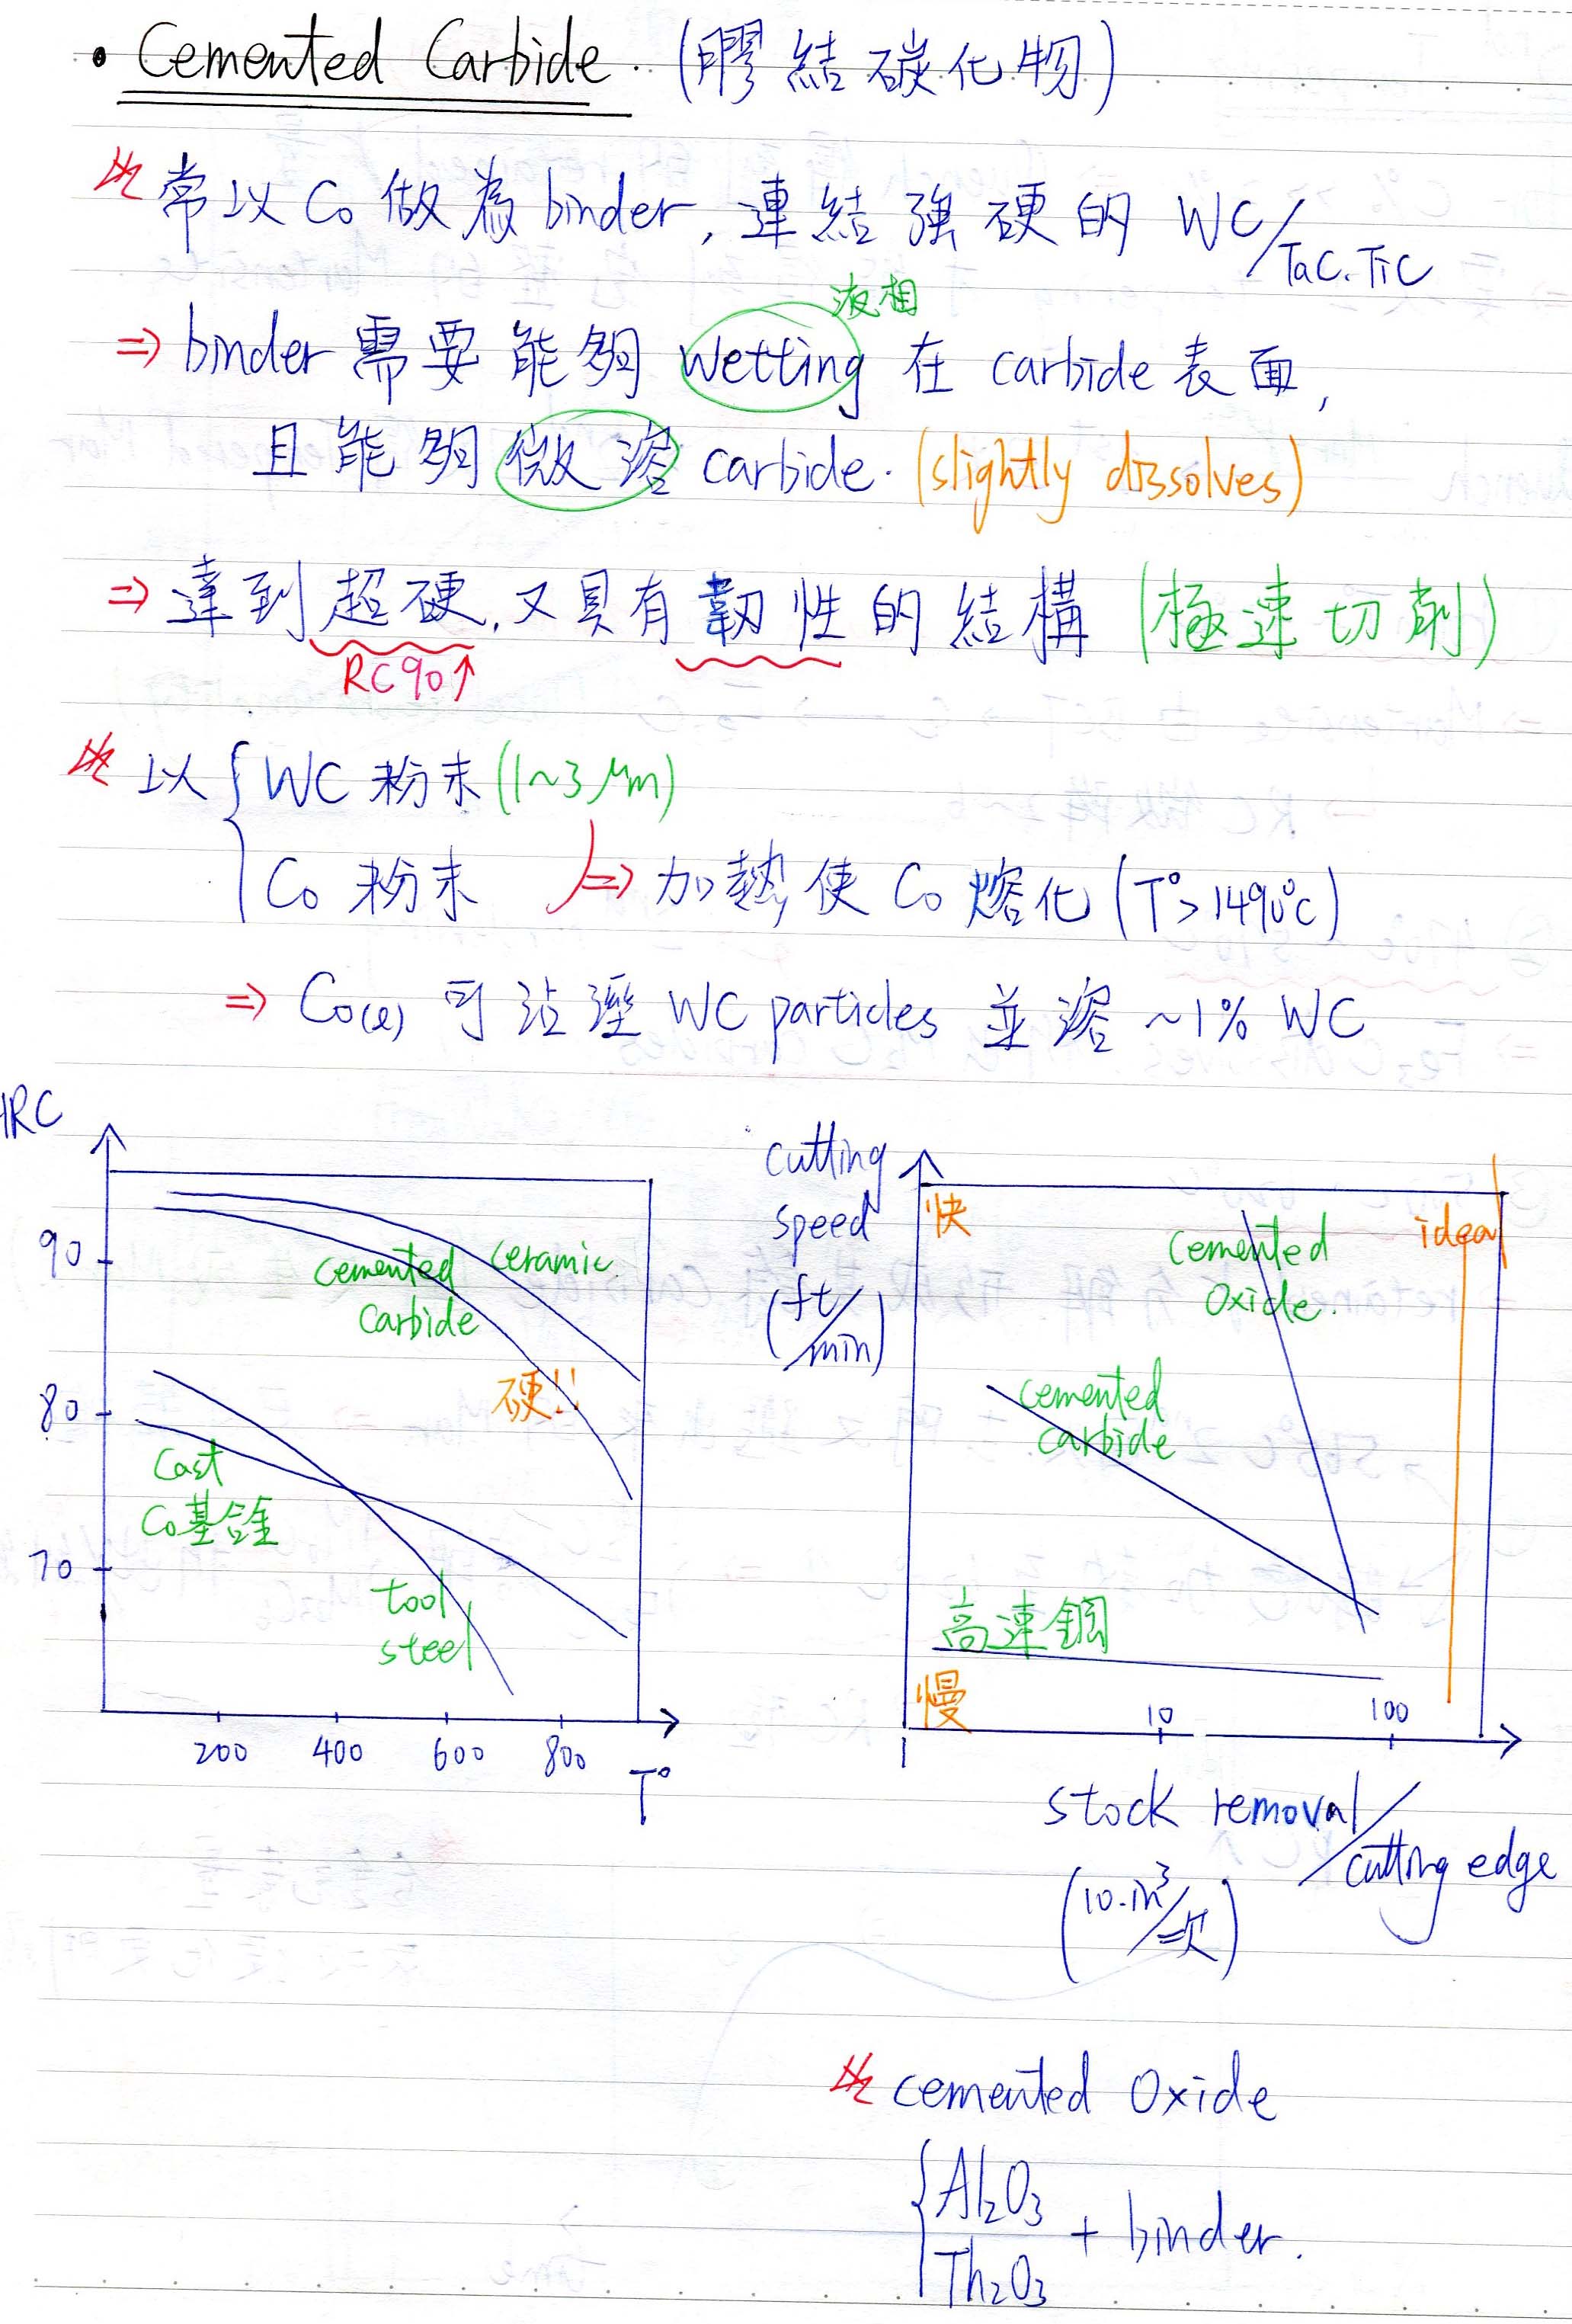 • Cemented Carbide. (膠結碳化物)
常以 Co 做為 binder, 連結強硬的 WC/TaC.TiC
液相
⇒ binder 需要能夠 wetting 在 carbide 表面,
且能夠微溶 carbide. (slightly dissolves)
⇒ 達到超硬, 又具有韌性的結構 (極速切削)
RC90↑
以 { WC 粉末 (1~3 μm)
Co 粉末 ⇒ 加熱使 Co 熔化 (T°>1490°C)
⇒ Co(l) 可沾溼 WC particles 並溶 ~1% WC
HRC
90
80
70
ceramic
cemented
carbide
硬!!
Cast
Co基合金
tool
steel
200 400 600 800
T°
cutting
speed
(ft/min)
快
cemented
oxide.
ideal
cemented
carbide
高速鋼
慢
1 10 100
stock removal/cutting edge
(10.in³/次)
cemented Oxide
{ Al₂O₃
Th₂O₃ + binder.